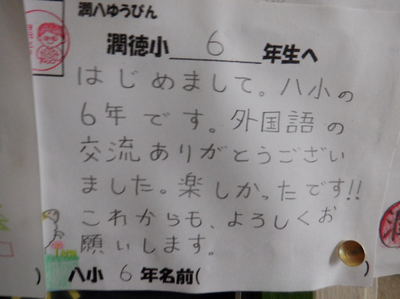 潤八ゆうびん
潤徳小 6 年生へ
はじめまして。八小の
6年です。外国語の
交流ありがとうござい
ました。楽しかったです!!
これからも、よろしくお
願いします。
八小 6 年名前(
)